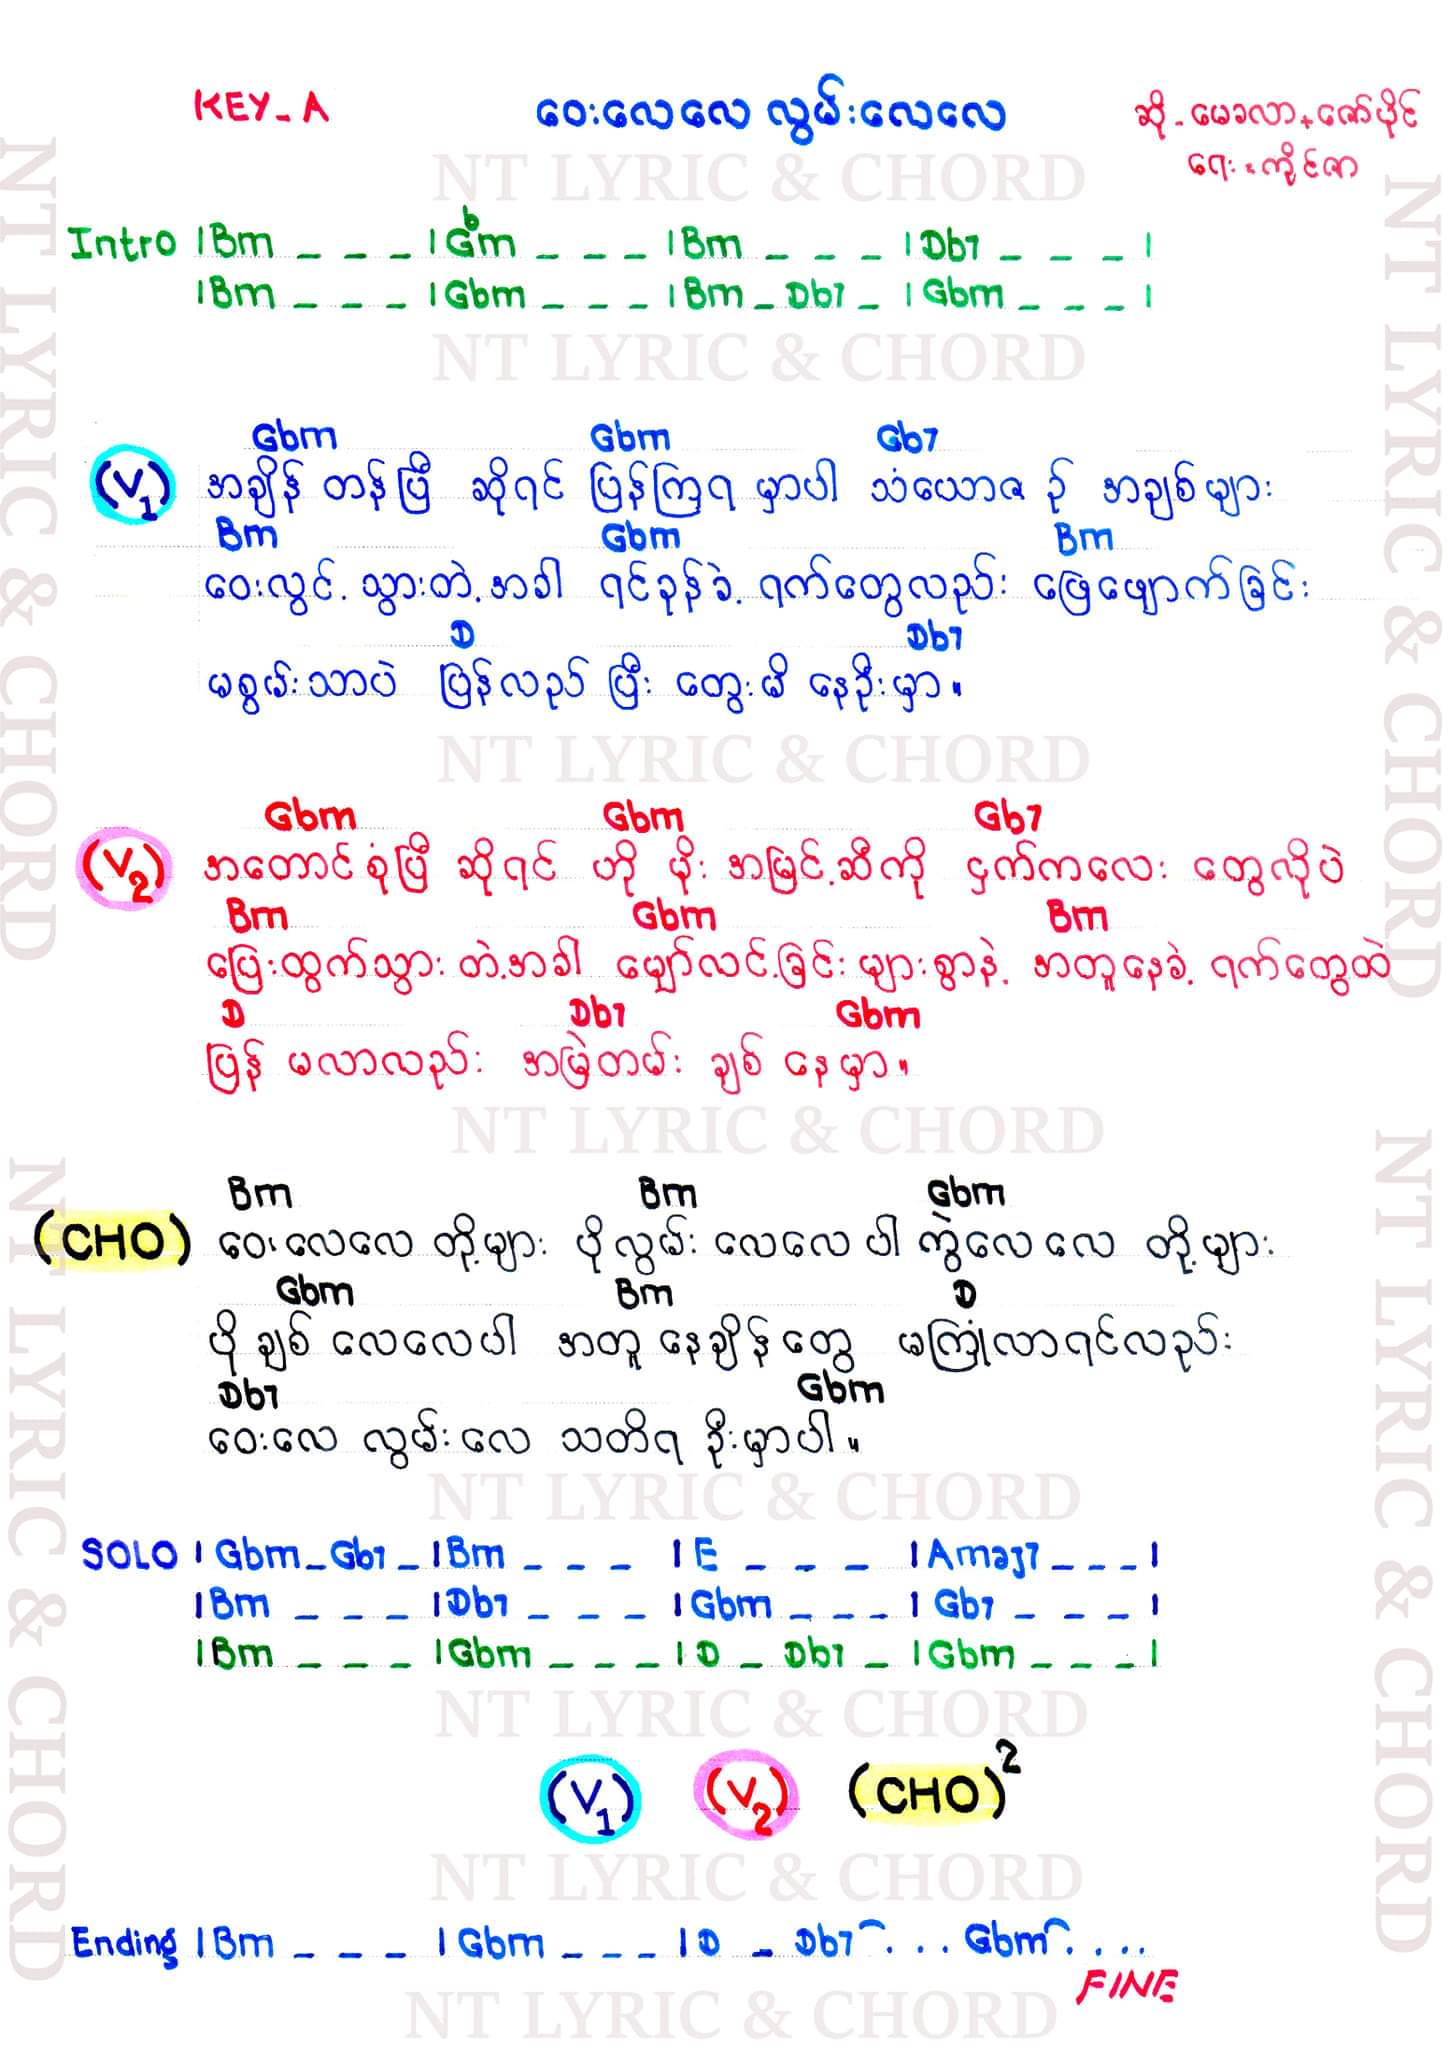 KEY_A ဝေးလေလေ လွမ်းလေလေ ဆို - မေခလာ + ဇော်ပိုင်
ရေး - ကိုင်ဇာ
NT LYRIC & CHORD
Intro |Bm _ _ _ |Gbm _ _ _ |Bm _ _ _ |Db7 _ _ _ |
|Bm _ _ _ |Gbm _ _ _ |Bm _ Db7 _ |Gbm _ _ _ |
NT LYRIC & CHORD
Gbm Gbm Gb7
(V1) အချိန် တန်ပြီ ဆိုရင် ပြန်ကြရ မှာပါ သံယောဇဉ် အချစ်များ
Bm Gbm Bm
ဝေးလွင့်သွားတဲ့အခါ ရင်ခုန်ခဲ့ ရက်တွေလည်း ဖြေဖျောက်ခြင်း
D Db7
မစွမ်းသာပဲ ပြန်လည် ပြီး တွေးမိ နေဦးမှာ။
NT LYRIC & CHORD
Gbm Gbm Gb7
(V2) အတောင်စုံပြီ ဆိုရင် ဟို မိုး အမြင့်ဆီကို ငှက်ကလေး တွေလိုပဲ
Bm Gbm Bm
ပြေးထွက်သွား တဲ့အခါ မျှော်လင့်ခြင်း များစွာနဲ့ အတူနေခဲ့ ရက်တွေထဲ
D Db7 Gbm
ပြန် မလာလည်း အမြဲတမ်း ချစ် နေမှာ။
NT LYRIC & CHORD
Bm Bm Gbm
(CHO) ဝေးလေလေ တို့များ ပိုလွမ်း လေလေပါ ကွဲလေလေ တို့များ
Gbm Bm D
ပို ချစ် လေလေပါ အတူ နေချိန်တွေ မကြုံလာရင်လည်း
Db7 Gbm
ဝေးလေ လွမ်းလေ သတိရ ဦးမှာပါ။
NT LYRIC & CHORD
SOLO | Gbm _ Gb7 _ |Bm _ _ _ |E _ _ _ |Amaj7 _ _ _ |
|Bm _ _ _ |Db7 _ _ _ |Gbm _ _ _ |Gb7 _ _ _ |
|Bm _ _ _ |Gbm _ _ _ |D _ Db7 _ |Gbm _ _ _ |
NT LYRIC & CHORD
(V1) (V2) (CHO)2
NT LYRIC & CHORD
Ending |Bm _ _ _ |Gbm _ _ _ |D _ Db7 . . . Gbm . . . .
FINE
NT LYRIC & CHORD
NT LYRIC & CHORD
NT LYRIC & CHORD
NT LYRIC & CHORD
NT LYRIC & CHORD